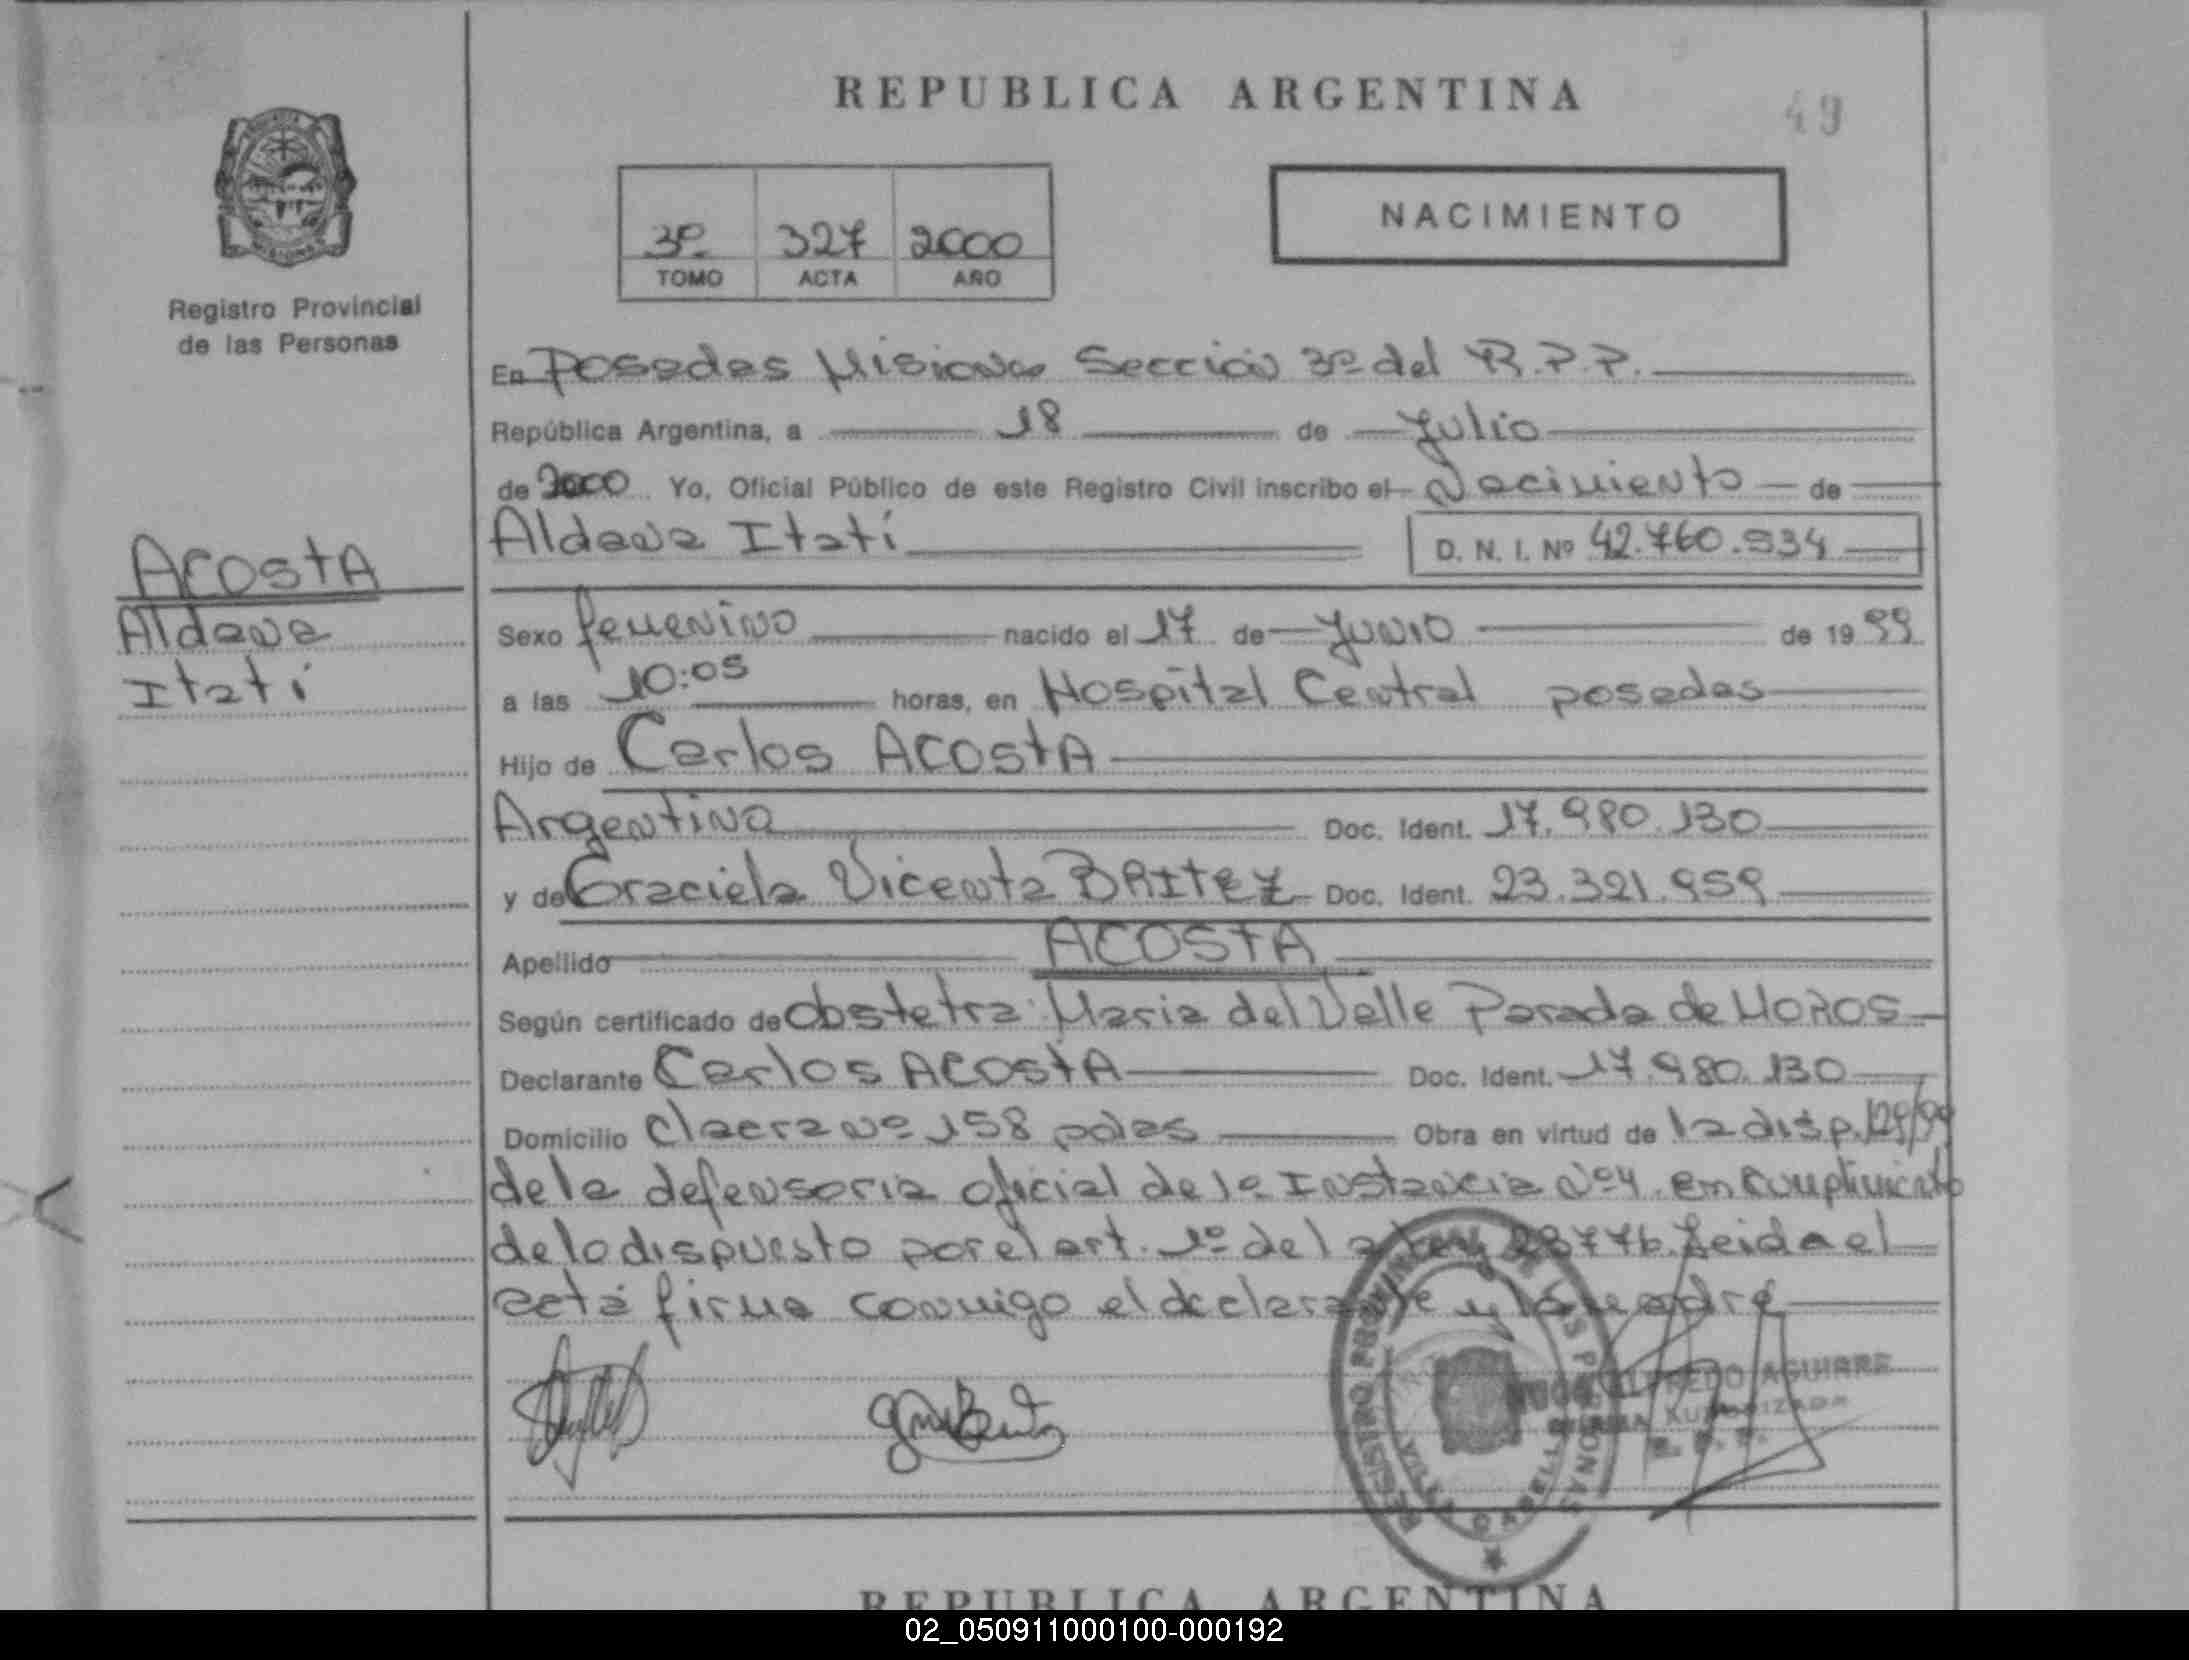 REPUBLICA ARGENTINA
49
Registro Provincial
de las Personas
3º 327 2000
TOMO ACTA AÑO
NACIMIENTO
En Posadas Misiones Sección 3º del R.P.P.
República Argentina, a 18 de Julio
de 2000 Yo, Oficial Público de este Registro Civil inscribo el Nacimiento de
Aldana Itatí D. N. I. Nº 42.760.934
ACOSTA
Aldana
Itatí
Sexo femenino nacido el 17 de Junio de 1999
a las 10:05 horas, en Hospital Central posadas
Hijo de Carlos ACOSTA
Argentino Doc. Ident. 17.980.130
y de Graciela Vicenta BRITEZ Doc. Ident. 23.321.959
Apellido ACOSTA
Según certificado de obstetra Maria del Valle Parada de MOROS
Declarante Carlos ACOSTA Doc. Ident. 17.980.130
Domicilio Chacra Nº 158 pdas Obra en virtud de la disp. 129/99
de la defensoria oficial de 1º Instancia Nº4. en cumplimiento
de lo dispuesto por el art. 1º de la Ley Leida el
acta firma conmigo el declarante y la madre
REGISTRO PROVINCIAL DE LAS PERSONAS
AGUIRRE
REPUBLICA ARGENTINA
02_050911000100-000192